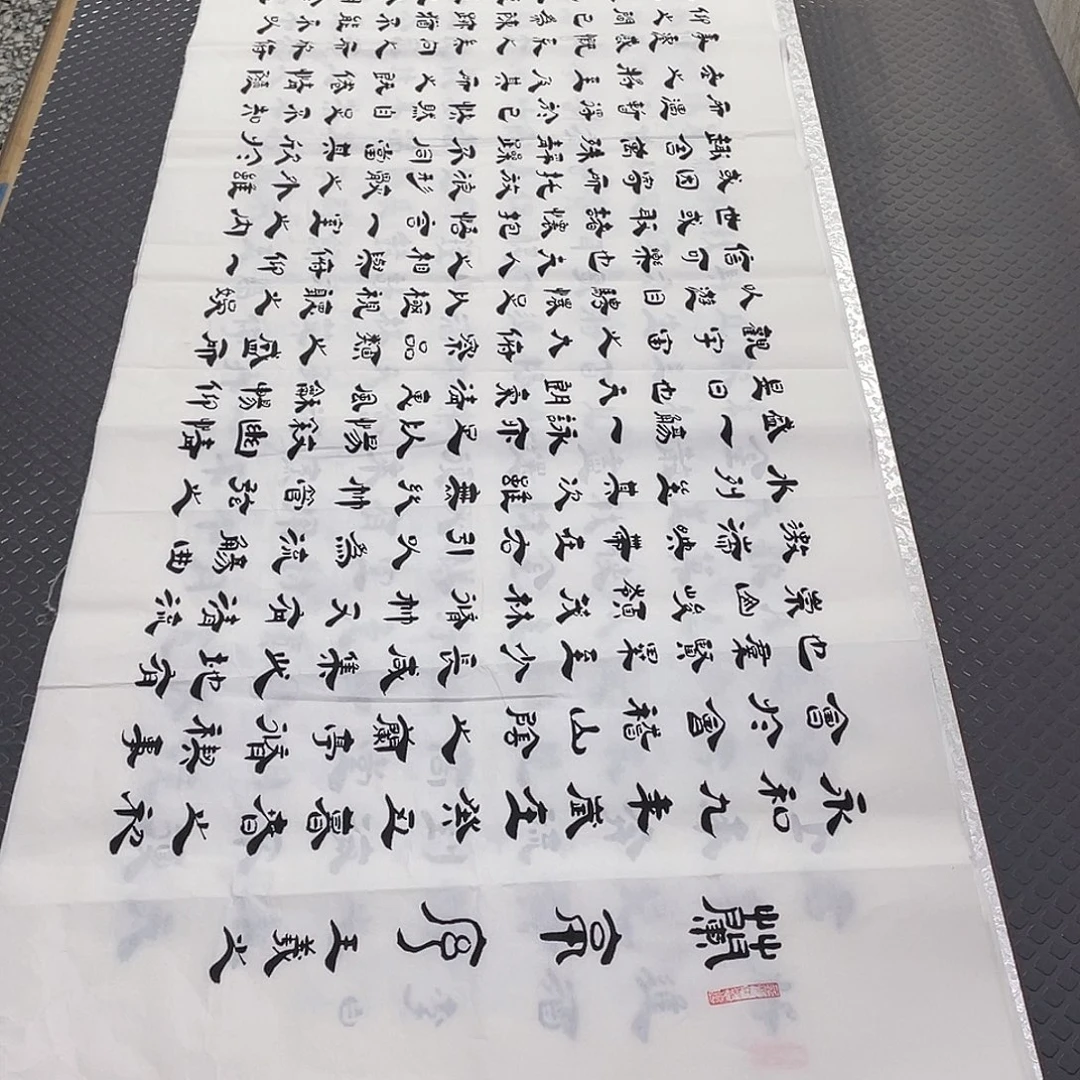 蘭亭序 王羲之
永和九年歲在癸丑暮春之初
會於會稽山陰之蘭亭脩禊事
也羣賢畢至少長咸集此地有
崇山峻嶺茂林脩竹又有清流
激湍映帶左右引以為流觴曲
水列坐其次雖無絲竹管弦之
盛一觴一詠亦足以暢敘幽情
是日也天朗氣清惠風和暢仰
觀宇宙之大俯察品類之盛所
以游目騁懷足以極視聽之娛
信可樂也夫人之相與俯仰一
世或取諸懷抱悟言一室之內
或因寄所託放浪形骸之外雖
趣舍萬殊靜躁不同當其欣於
所遇暫得於己怏然自足不知
老之將至及其所之既倦情隨
事遷感慨係之矣向之所欣俛
仰之間已為陳跡猶不能不以